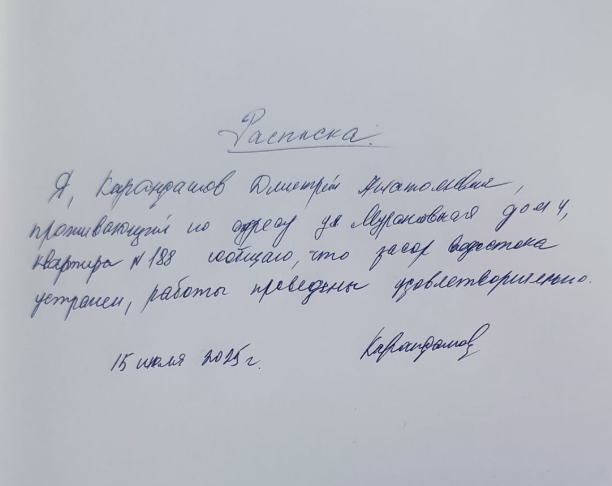 Расписка.
Я, Карандашов Дмитрий Анатольевич,
проживающий по адресу ул Мурановская дом 4,
квартира № 188 сообщаю, что засор водостока
устранен, работы проведены удовлетворительно.
15 июля 2025 г. Карандашов